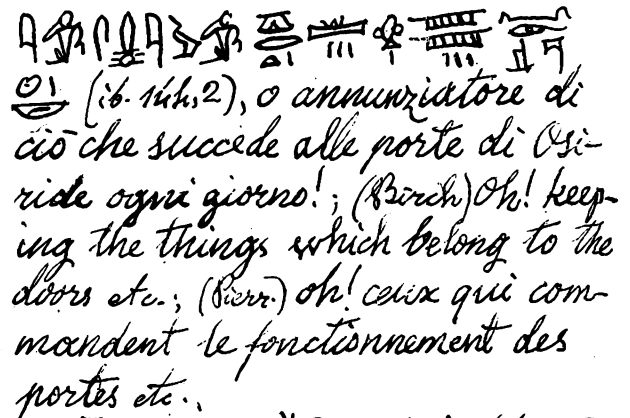 (ib. 2), o annunziatore di
ciò che succede alle porte di Osi-
ride ogni giorno!; (Birch) Oh! keep-
ing the things which belong to the
doors etc.; (Pierr.) oh! ceux qui com-
mandent le fonctionnement des
portes etc.